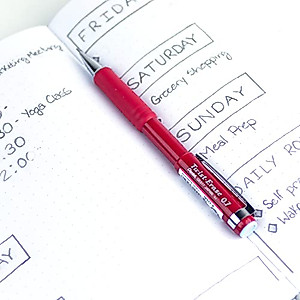 Meeting
30 - Yoga Class
:30
2:00
SATURDAY
Grocery Shopping
SUNDAY
Meal Prep
DAILY RO
Self
Wake
Twist-Erase 0.7